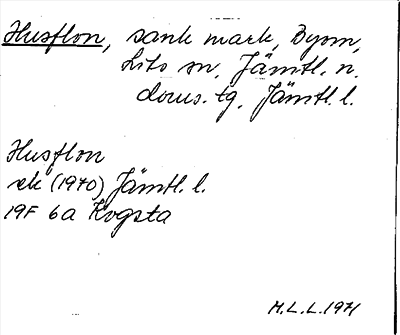 Husflon, sank mark, Byom,
Lits sn, Jämtl. n.
doms. tg, Jämtl. l.
Husflon
ek (1970) Jämtl. l.
19F 6a Kogsta
M.L.L. 1971